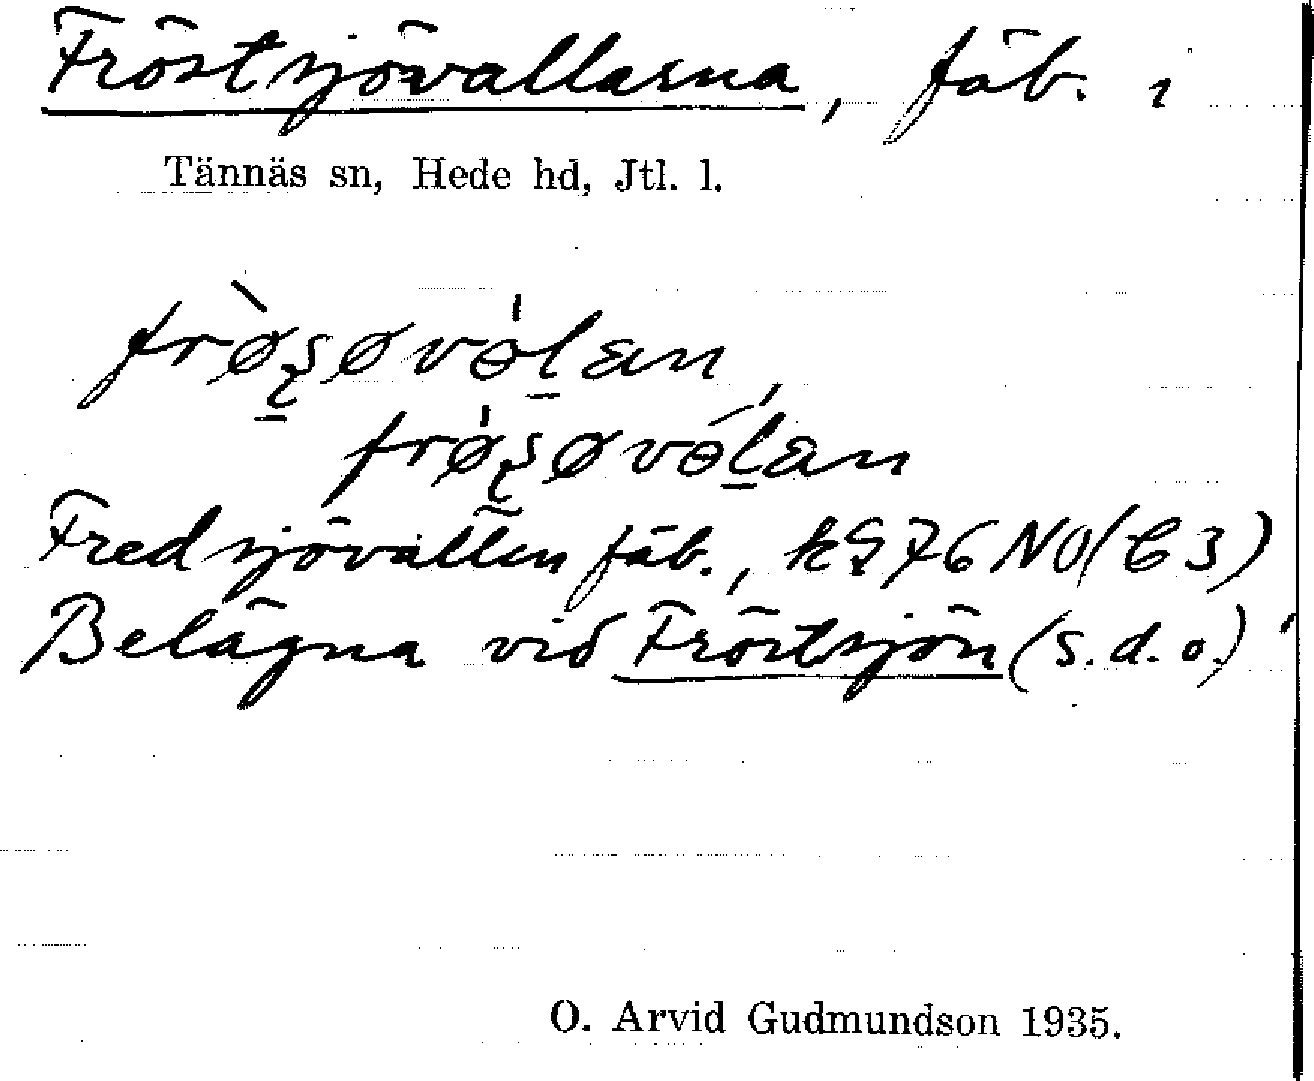 Fröstsjövallarna, fäb. i
Tännäs sn, Hede hd, Jtl. l.
Fredsjövallen fäb., k976NO(C3)
Belägna vid Fröstsjön (s.d.o.)
O. Arvid Gudmundson 1935.